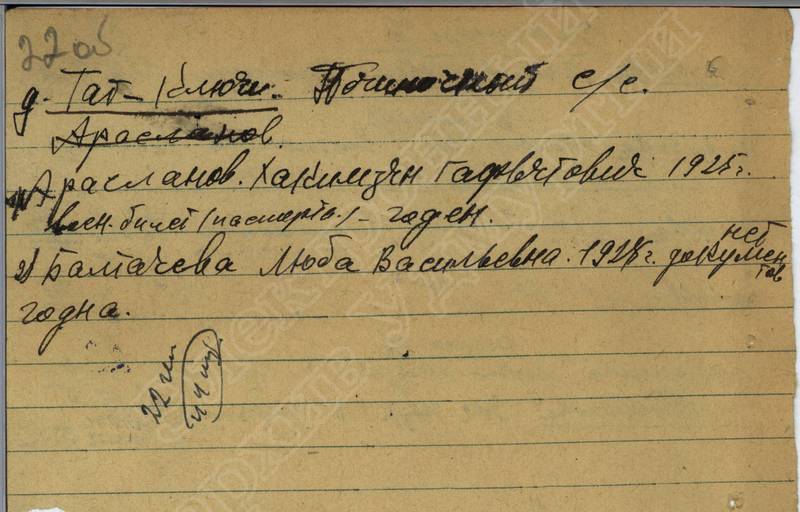 22 об
д. Тат-Ключи. Починочный с/с.
Арасланов.
1) Арасланов. Хакимзян Гафиятович 1925 г.
воен. билет (паспорта.) – годен.
2) Балтачева Люба Васильевна. 1924 г. нет документов
годна.
22